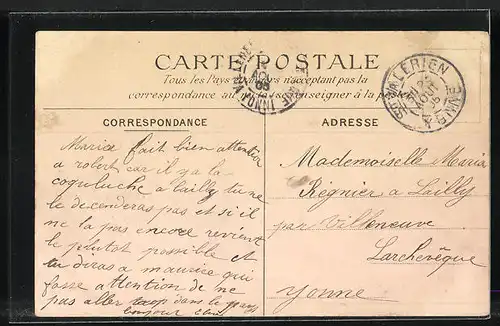 CARTE POSTALE
Tous les Pays n'acceptent pas la
correspondance au se renseigner à la poste
ST VALERIEN
YONNE
CORRESPONDANCE
ADRESSE
fait bien attention
a robert car il y a la
coqueluche a lailly tu ne
le decenderas pas et si il
ne la pas encore revient
le plutot possible et
tu diras a maurice qui
fasse attention de ne
pas aller trop dans le pays
bonjour
Mademoiselle Maria
Régnier a Lailly
par Villeneuve
Larchevêque
Yonne